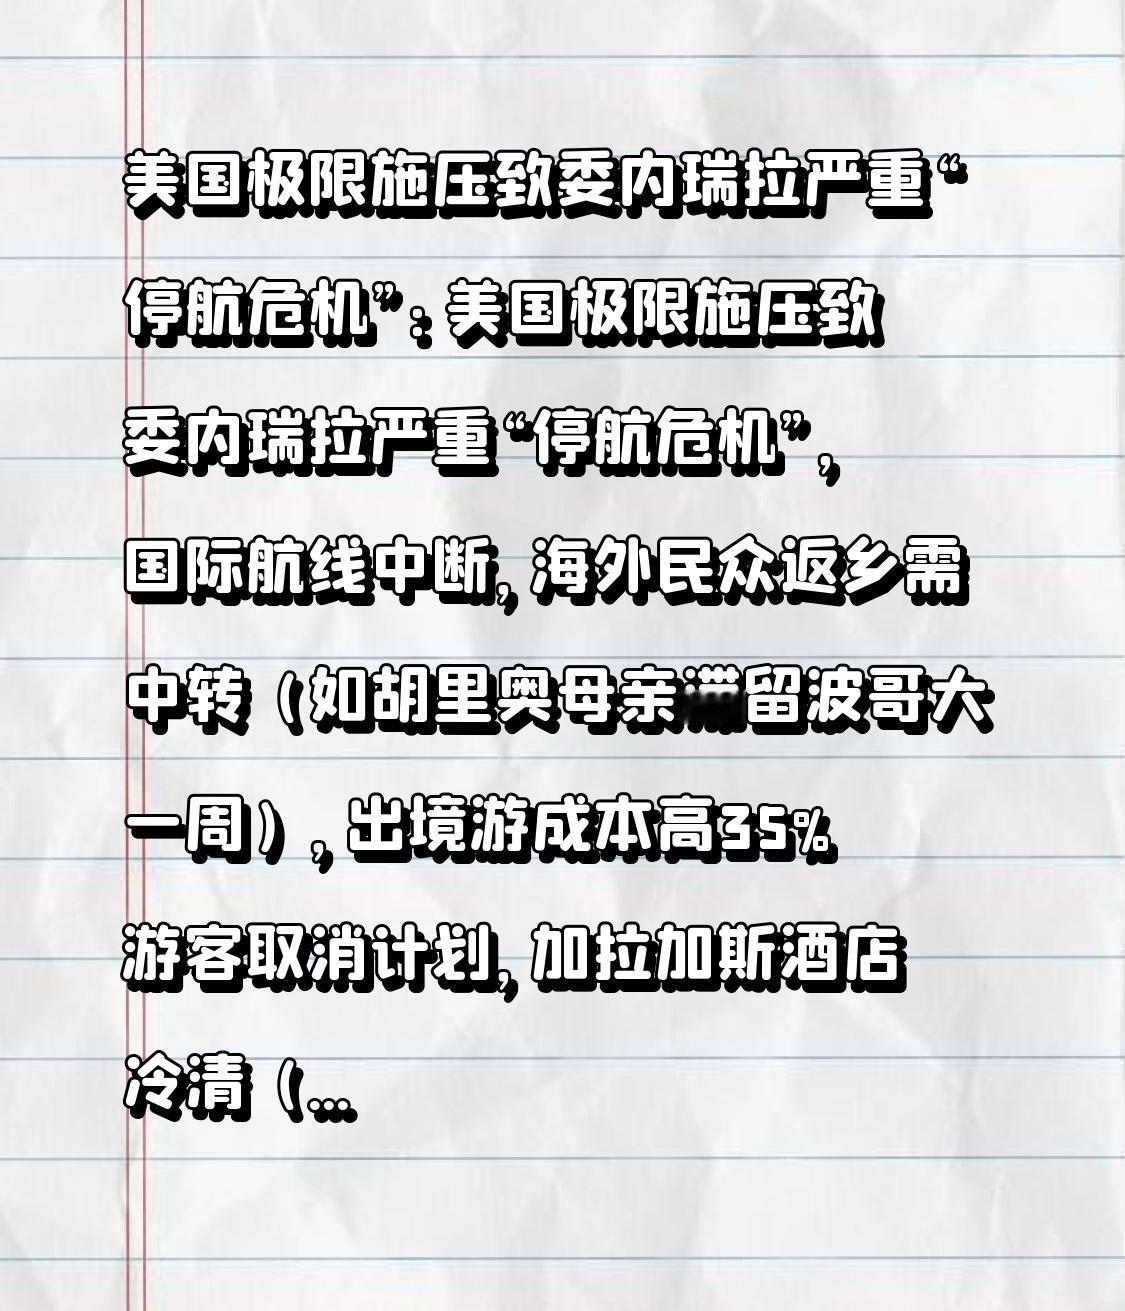 美国极限施压致委内瑞拉严重“
停航危机”：美国极限施压致
委内瑞拉严重“停航危机”，
国际航线中断，海外民众返乡需
中转（如胡里奥母亲留波哥大
一周），出境游成本高35%
游客取消计划，加拉加斯酒店
冷清（...